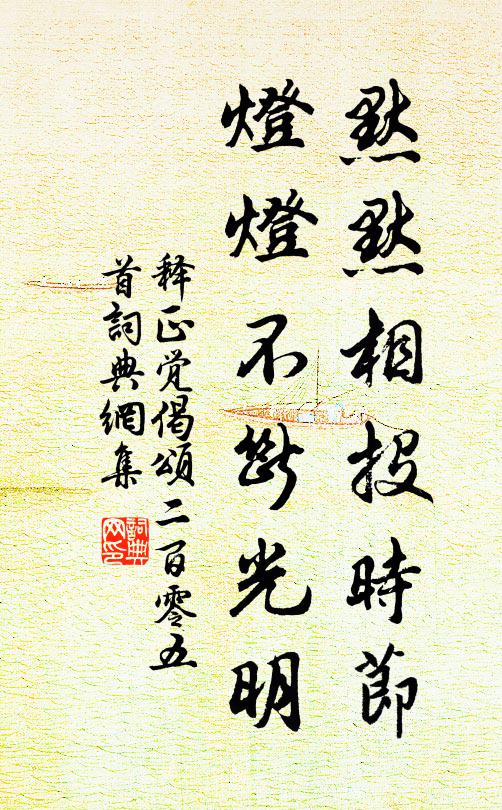 默默相投時節
燈燈不斷光明
释正觉偈頌二百零五
首詞典網集
詞典网印